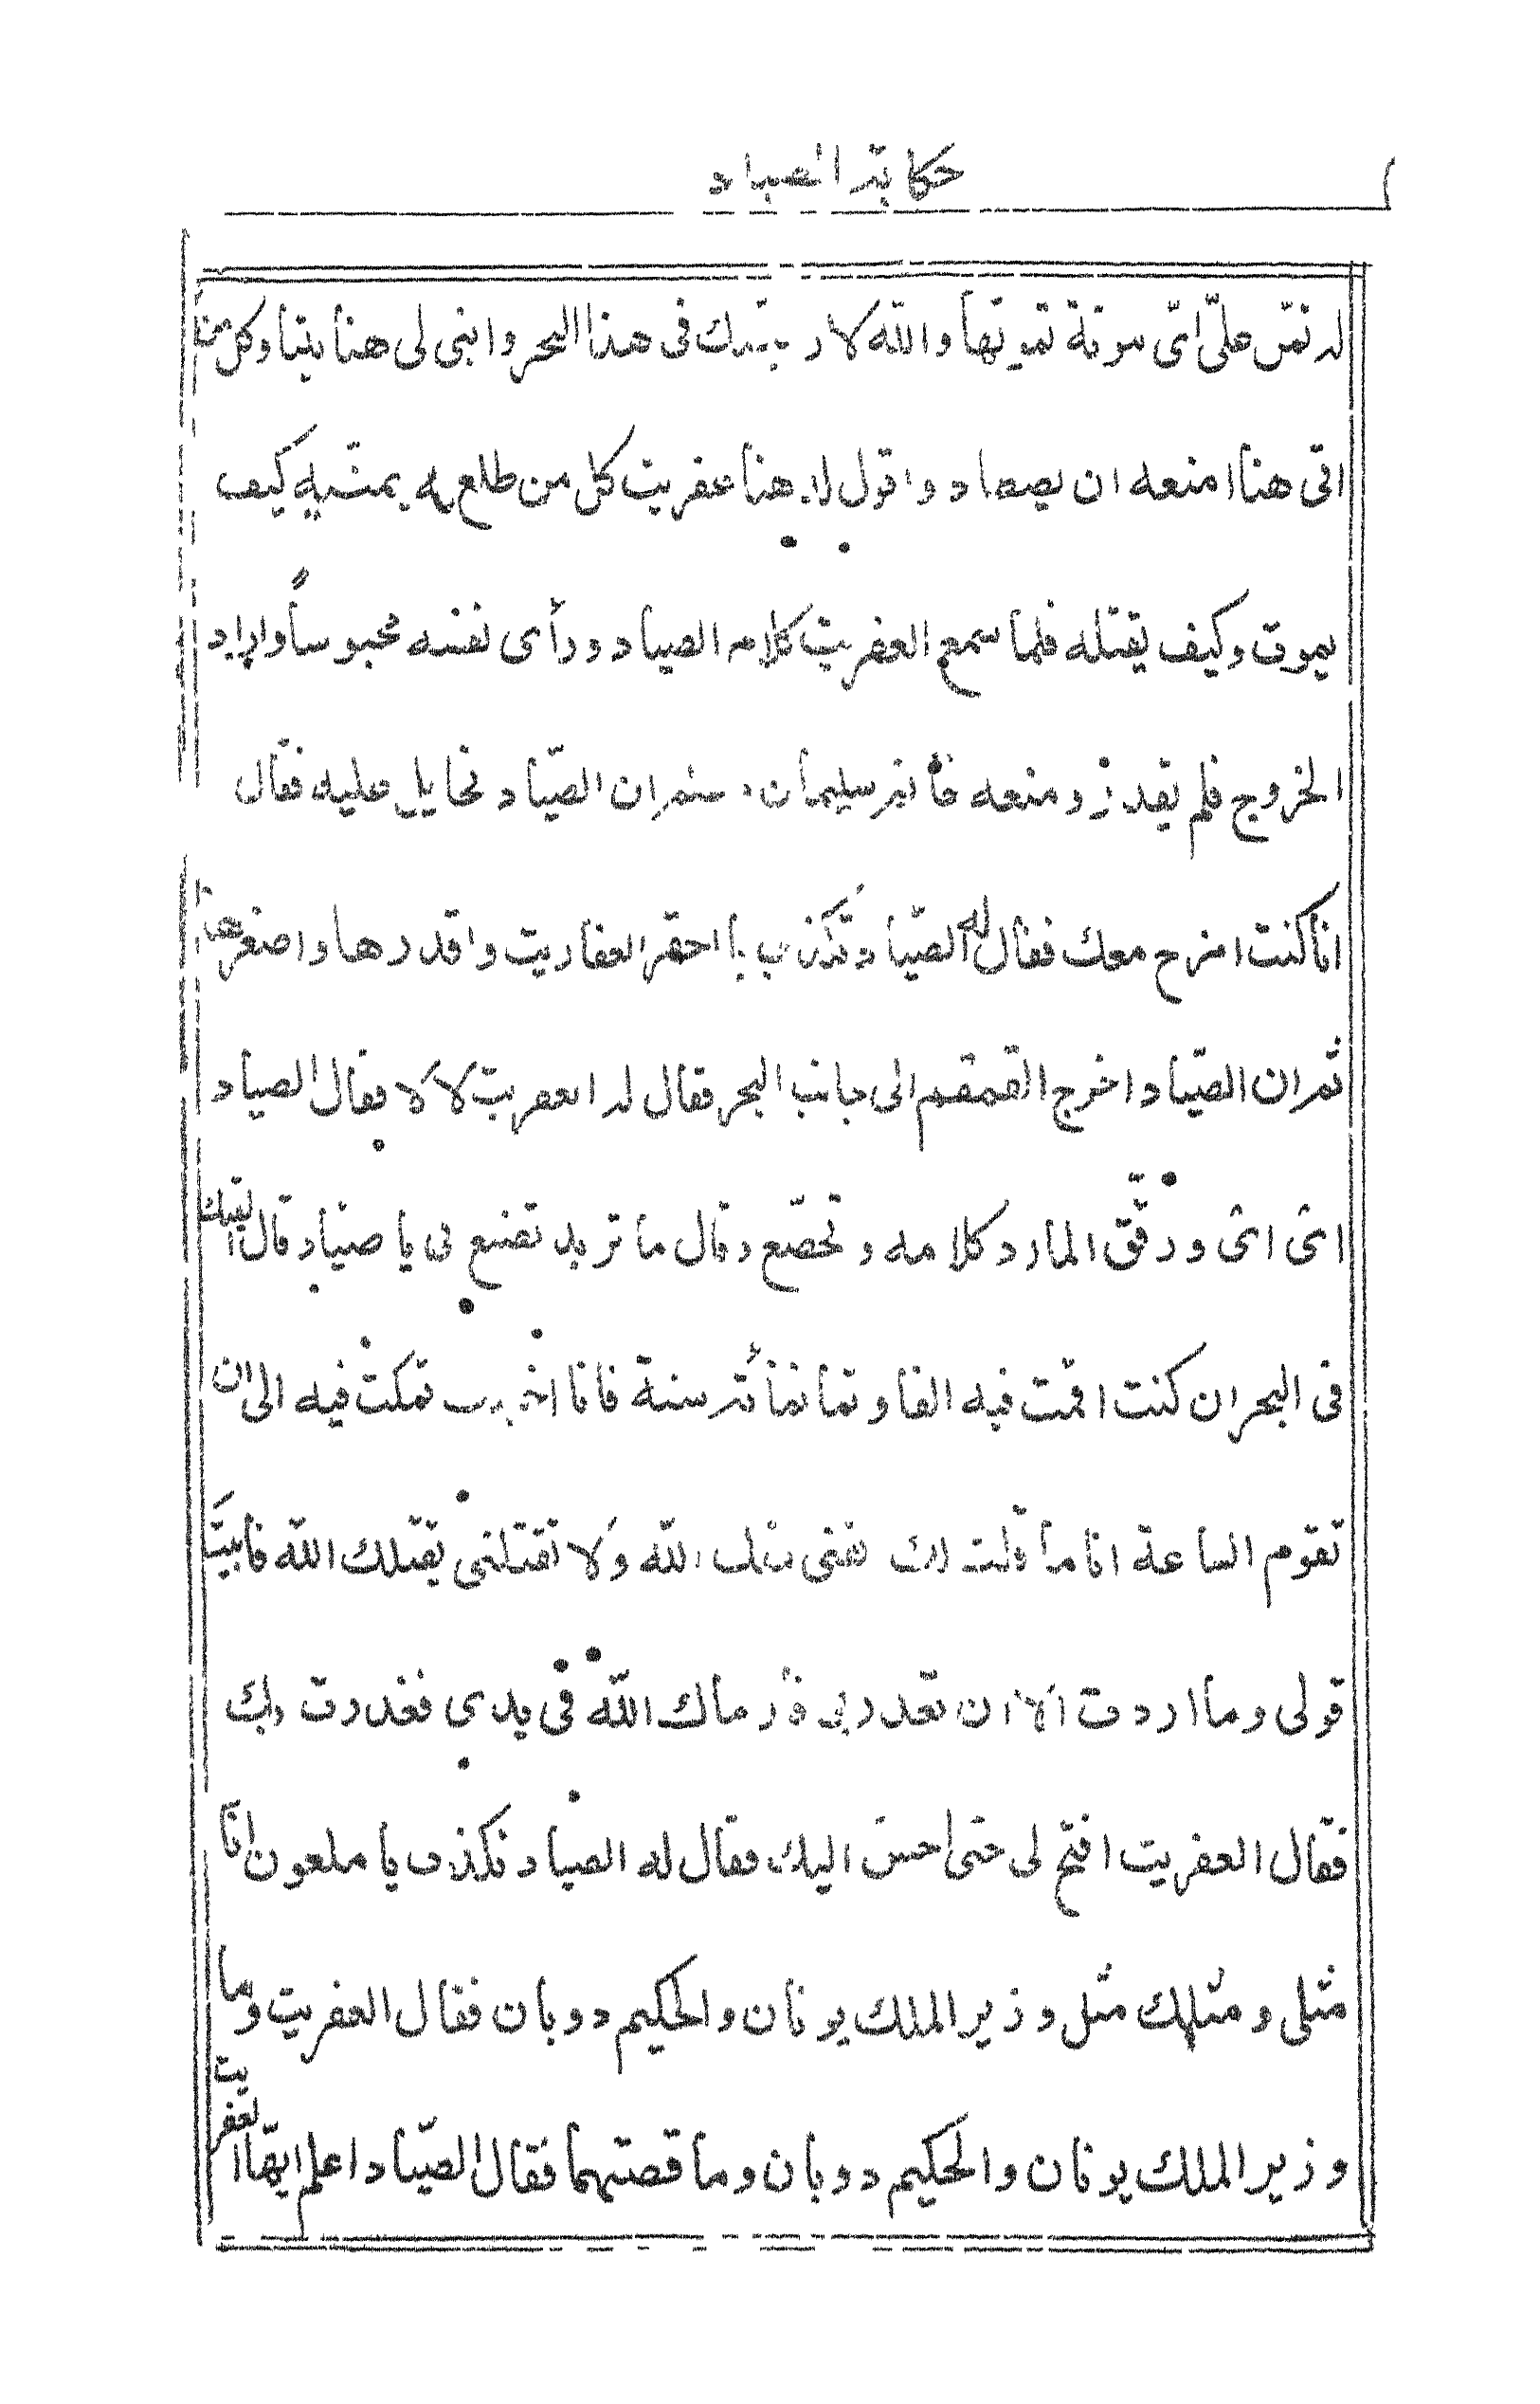 حكاية الصياد
له تمن علىّ اىّ موتة تموتها والله لارميتك فى هذا البحر وابنى لى هنا بيتا وكل من
اتى هنا امنعه ان يصطاد واقول له هنا عفريت كل من طلع به يمنيه كيف
يموت وكيف يقتله فلما سمع العفريت كلام الصياد ورأى نفسه محبوساً واراد
الخروج فلم يقدر ومنعه خاتم سليمان ثم ان الصيّاد تحايل عليه فقال
انا كنت امزح معك فقال له الصيّاد تكذب يا احقر العفاريت واقذرها واصغرها
ثم ان الصيّاد اخرج القمقم الى جانب البحر فقال له العفريت لا لا فقال الصياد
اى اى ورقّق المارد كلامه وتخضّع وقال ما تريد تصنع بى يا صياد قال القيك
فى البحر ان كنت اقمت فيه الفا وثمانمائة سنة فانا تمكث فيه الى ان
تقوم الساعة انا ما قلت لك ابقنى يبقيك الله ولا تقتلنى يقتلك الله فابيت
قولى وما اردت الا ان تغدر بى فرماك الله فى يدى فغدرت بك
فقال العفريت افتح لى حتى احسن اليك فقال له الصياد تكذب يا ملعون انا
مثلى ومثلك مثل وزير الملك يونان والحكيم دوبان فقال العفريت وما
وزير الملك يونان والحكيم دوبان وما قصتهما فقال الصيّاد اعلم ايها العفريت